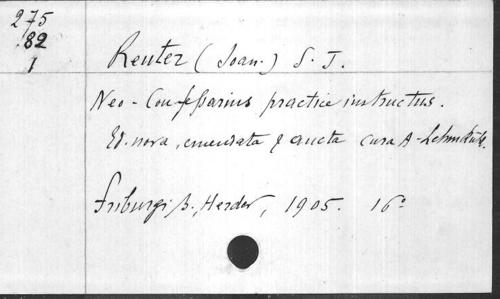 275
82
1
Reuter (Joan.) S. J.
Neo-Confessarius practice instructus.
Ed. nova, emendata & aucta cura A. Lehmkuhl.
Friburgi B., Herder, 1905. 16°